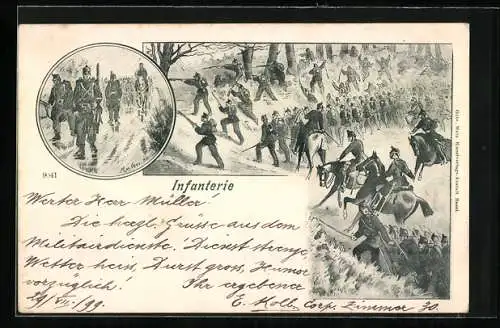 9041
Infanterie
Werter Herr Müller!
Die herzl. Grüsse aus dem
Militairdienste. Dienst strenge,
Wetter heis, Durst gross, Humor
vorzüglich! Ihr ergebene
29/VII./99. E. Kolb, Corp. Zimmer 30.